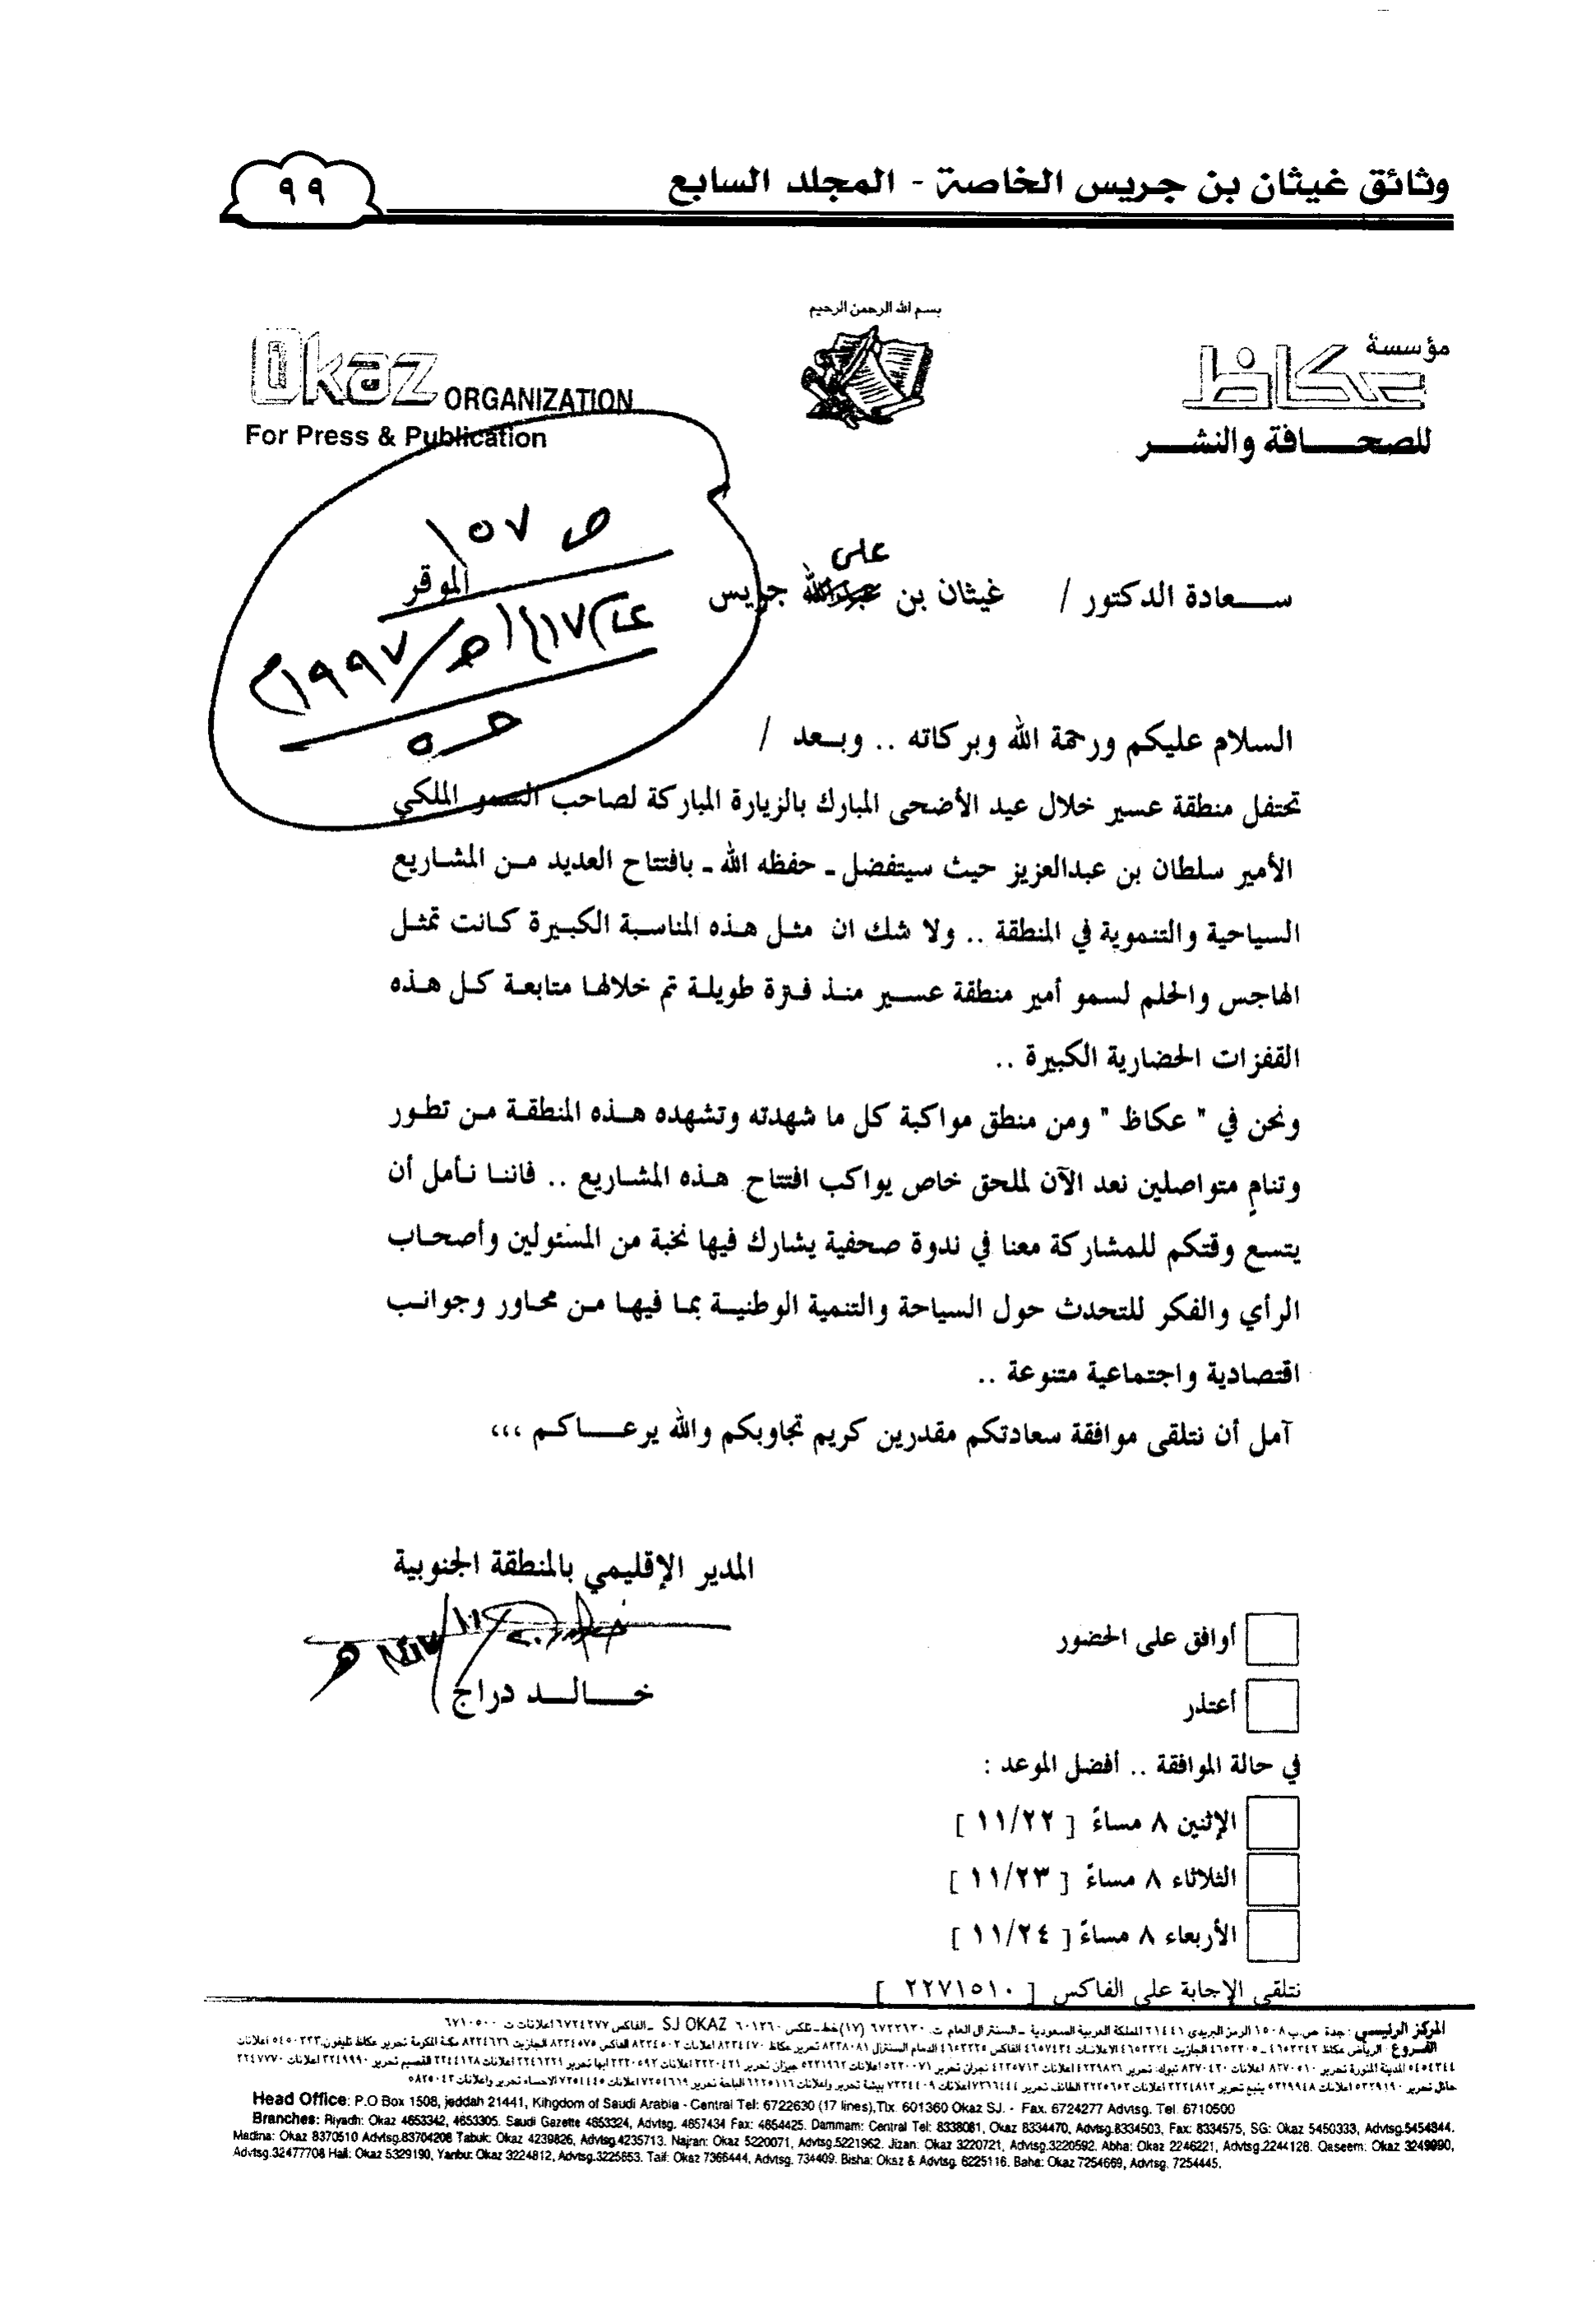 وثائق غيثان بن جريس الخاصة - المجلد السابع
٩٩
بسم الله الرحمن الرحيم
مؤسسة
عكاظ
للصحافة والنشر
Okaz ORGANIZATION
For Press & Publication
ص ١٥٧
على
سعادة الدكتور / غيثان بن عبدالله جريس الموقر
السلام عليكم ورحمة الله وبركاته .. وبعد /
تحتفل منطقة عسير خلال عيد الأضحى المبارك بالزيارة المباركة لصاحب السمو الملكي
الأمير سلطان بن عبدالعزيز حيث سيتفضل ـ حفظه الله ـ بافتتاح العديد من المشاريع
السياحية والتنموية في المنطقة .. ولا شك ان مثل هذه المناسبة الكبيرة كانت تمثل
الهاجس والحلم لسمو أمير منطقة عسير منذ فترة طويلة تم خلالها متابعة كل هذه
القفزات الحضارية الكبيرة ..
ونحن في " عكاظ " ومن منطق مواكبة كل ما شهدته وتشهده هذه المنطقة من تطور
وتنامٍ متواصلين نعد الآن لملحق خاص يواكب افتتاح هذه المشاريع .. فاننا نأمل أن
يتسع وقتكم للمشاركة معنا في ندوة صحفية يشارك فيها نخبة من المسئولين وأصحاب
الرأي والفكر للتحدث حول السياحة والتنمية الوطنية بما فيها من محاور وجوانب
اقتصادية واجتماعية متنوعة ..
آمل أن نتلقى موافقة سعادتكم مقدرين كريم تجاوبكم والله يرعاكم ،،،
المدير الإقليمي بالمنطقة الجنوبية
خالد دراج
أوافق على الحضور
أعتذر
في حالة الموافقة .. أفضل الموعد :
الإثنين ٨ مساءً [ ١١/٢٢ ]
الثلاثاء ٨ مساءً [ ١١/٢٣ ]
الأربعاء ٨ مساءً [ ١١/٢٤ ]
نتلقى الإجابة على الفاكس [ ٢٢٧١٥١٠ ]
المركز الرئيسي : جدة ص.ب ١٥٠٨ الرمز البريدي ٢١٤٤١ المملكة العربية السعودية ـ السنترال العام ت. ٦٧٢٢٦٣٠ (١٧) خط ـ تلكس ٦٠١٣٦٠ SJ OKAZ ـ الفاكس ٦٧٢٤٢٧٧ اعلانات ت ٦٧١٠٥٠٠
Head Office: P.O Box 1508, jeddah 21441, Kihgdom of Saudi Arabia - Central Tel: 6722630 (17 lines),Tlx. 601360 Okaz SJ. - Fax. 6724277 Advtsg. Tel. 6710500
Branches: Riyadh: Okaz 4653342, 4653305. Saudi Gazette 4653324, Advtsg. 4657434 Fax: 4654425. Dammam: Central Tel: 8338081, Okaz 8334470, Advtsg.8334503, Fax: 8334575, SG: Okaz 5450333, Advtsg.5454344.
Madina: Okaz 8370510 Advtsg.83704208 Tabuk: Okaz 4239826, Advtsg.4235713. Najran: Okaz 5220071, Advtsg.5221962. Jizan: Okaz 3220721, Advtsg.3220592. Abha: Okaz 2246221, Advtsg.2244128. Qaseem: Okaz 3249990,
Advtsg.32477708 Hail: Okaz 5329190, Yanbu: Okaz 3224812, Advtsg.3225653. Taif: Okaz 7366444, Advtsg. 734409. Bisha: Okaz & Advtsg. 6225116. Baha: Okaz 7254669, Advtsg. 7254445.